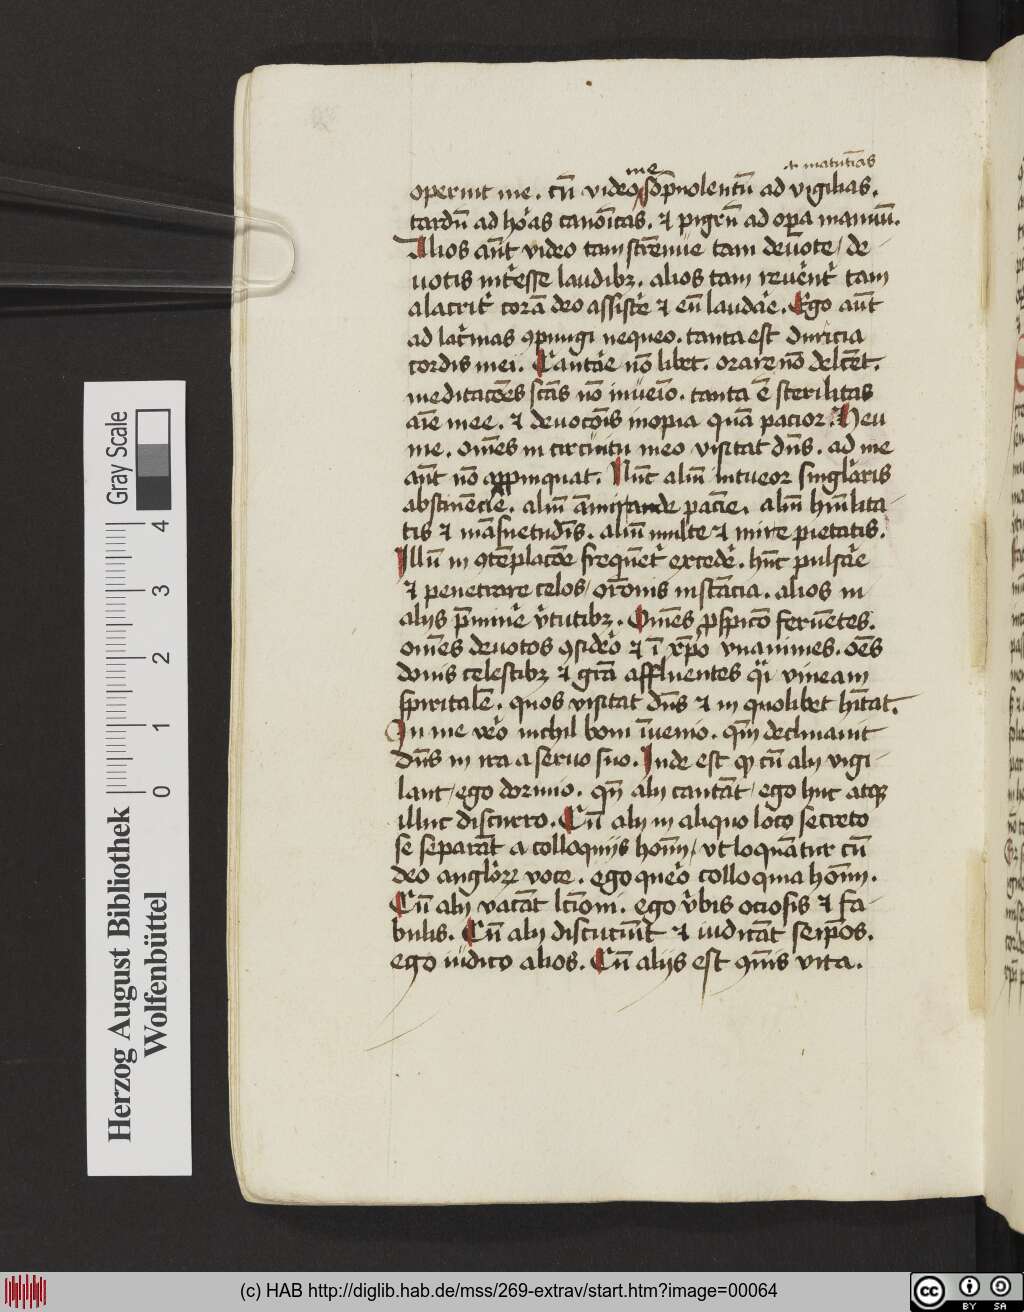 me & matuti̅as
operuit me. cu̅ video so̅pnolentu̅ ad vigilias.
tardu̅ ad horas cano̅icas. & pigru̅ ad op̅a manuu̅.
Alios aut̅ video tam stre̅nue tam deuote / de
uotis int̅esse laudibꝫ. alios tam reuere̅nt̅ tam
alacrit̅ cora̅ deo assiste̅ & eu̅ lauda̅e. Ego aut̅
ad lac̅mas ꝯpungi nequeo. tanta est duricia
cordis mei. Canta̅e no̅ libet. orare no̅ delc̅et.
meditaco̅es sc̅as no̅ inueio̅. tanta e̅ sterilitas
ai̅e mee. & deuoco̅is inopia qua̅ pacior. Heu
me. om̅es in circuitu meo visitat dn̅s. ad me
aut̅ no̅ appinquat. Nu̅c aliu̅ intueor singla̅ris
abstine̅cie. aliu̅ a̅mirande pacie̅. aliu̅ hu̅ilita
tis & ma̅suetudi̅s. aliu̅ multe & mire pietatis.
Illu̅ in ꝯte̅placo̅e freque̅ter̅ excede̅. hu̅c pulsa̅e
& penetrare celos / oro̅nis insta̅cia. alios in
alijs p̅mine̅ v̅tutibꝫ. Om̅es ꝓspicio̅ feruentes.
om̅es deuotos ꝯside̅o & i̅ xp̅o vnanimes. oe̅s
donis celestibꝫ & gra̅ affluentes q̅i vineam
spiritale̅. quos visitat dn̅s & in quolibet hi̅tat.
In me ve̅o nichil boni i̅uenio. qm̅ declinauit
dn̅s in ira a seruo suo. Inde est ꝙ cu̅ alij vigi
lant / ego dormio. qn̅ alij canta̅t / ego huc atqꝫ
illuc discurro. Cu̅ alij in aliquo loco secreto
se separa̅t a colloquijs hom̅i / vt loqua̅tur cu̅
deo anglo̅ꝝ voce. ego que̅o colloquia hom̅i.
Cu̅ alij vaca̅t lc̅ioni. ego v̅bis ociosis & fa
bulis. Cu̅ alij discuciu̅t & iudica̅t seip̅os.
ego iudico alios. Cu̅ alijs est ꝯmu̅is vita.
Gray Scale
0 1 2 3 4
Herzog August Bibliothek
Wolfenbüttel
(c) HAB http://diglib.hab.de/mss/269-extrav/start.htm?image=00064
cc BY SA